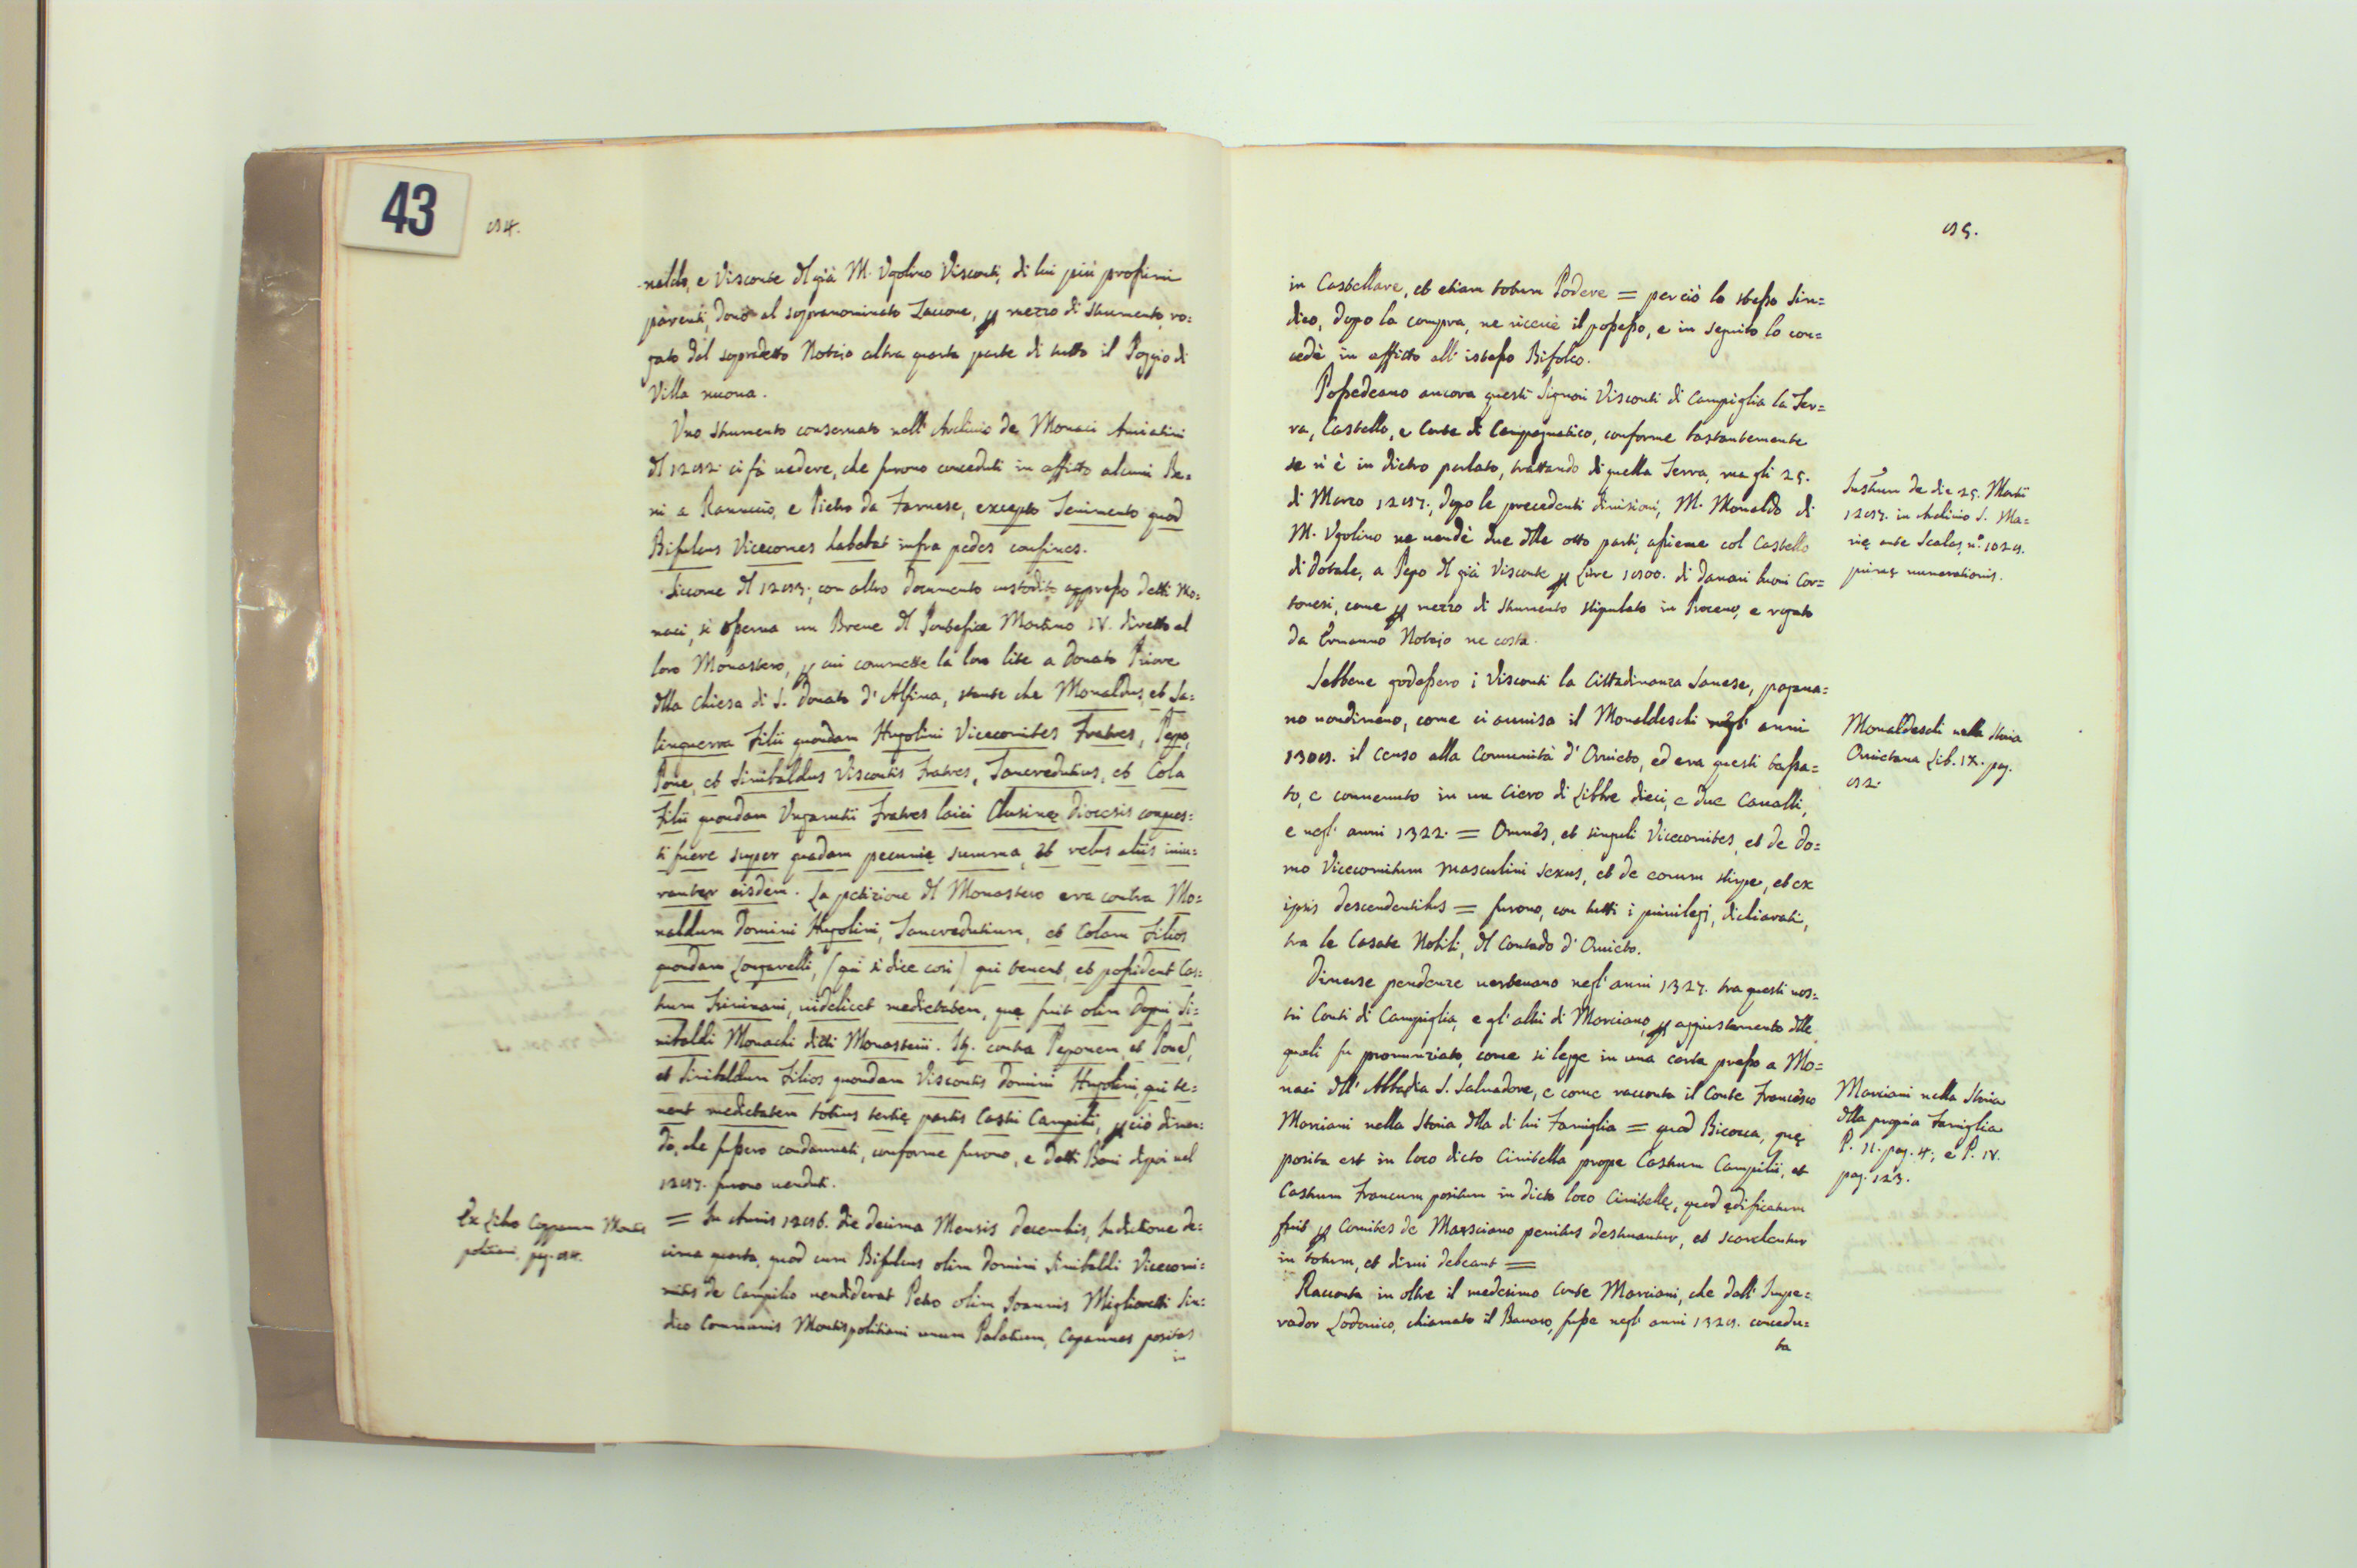 43
94.
naldo, e Visconte dl già M. Ugolino Visconti, di lui più prossimi
parenti, donò al sopranominato Zaccone, p mezzo di Strumento, ro=
gato dal sopradetto Notajo altra quarta parte di tutto il Poggio di
Villa nuova.
Uno Strumento conservato nell' Archivio de Monaci Amiatini
dl 1292. ci fà vedere, che furono conceduti in affitto alcuni Be=
ni a Rannuccio, e Pietro da Farnese, excepto Tenimento quod
Bifulcus Vicecomes habebat infra pedes confines.
Siccome dl 1293. con altro documento custodito appresso detti Mo=
naci, si osserva un Breve dl Pontefice Martino IV. diretto al
loro Monastero, p cui commette la loro lite a Donato Priore
dlla Chiesa di S. Donato d' Alfina, stante che Monaldus, et Sa=
linguerra Filii quondam Hugolini Vicecomites Fratres, Pepo,
Pone, et Sinibaldus Viscontis Fratres, Tancredutius, et Cola
Filii quondam Ungarutii Fratres laici Clusinę Diocesis conques=
ti fuere super quadam pecunię summa, et rebus aliis iniu=
rantur eisdem. La petizione dl Monastero era contra Mo=
naldum Domini Hugolini, Tancredutium, et Colam Filios
quondam Longarelli, (qui si dice così) qui tenent, et possident Cas=
trum, videlicet medietatem, quę fuit olim Dopni Si=
nibaldi Monachi dicti Monasterii. It. contra Peponem, et Pone,
et Sinibaldum Filios quondam Viscontis Domini Hugolini, qui te=
nent medietatem totius tertię partis Castri Campilii, p ciò diman=
dò, che fussero condannati, conforme furono, e detti Beni dipoi nel
1297. furono venduti.
= In Annis 1296. die decima Mensis Decembris, Indictione de=
cima quarta, quod cum Bifulcus olim Domini Sinibaldi Vicecomi=
nitis de Campilio vendiderat Petro olim Joannis Miglioretti Sin=
dico Communis Montispolitiani unum Palatium, Capannas positas
in
Ex Libro Montis
politiani. pag. 94.
95.
in Castellare, et etiam totum Podere = perciò lo stesso Sin=
dico, dopo la compra, ne ricevè il possesso, e in seguito lo con=
cedè in affitto all' istesso Bifolco.
Possedeano ancora questi Signori Visconti di Campiglia la Ter=
ra, Castello, e Corte di Campagnatico, conforme bastantemente
se n' è in dietro parlato, trattando di quella Terra, ma gli 25.
di Marzo 1297., dopo le precedenti divisioni, M. Monaldo di
M. Ugolino ne vendè due dlle otto parti, assieme col Castello
di Dotale, a Pepo dl già Visconte p Lire 1900. di danari buoni Cor=
tonesi, come p mezzo di Strumento stipulato in Proceno, e rogato
da Ermanno Notajo ne costa.
Sebbene godessero i Visconti la Cittadinanza Sanese, pagava=
no nondimeno, come ci avvisa il Monaldeschi negl' anni
1309. il Censo alla Comunità d' Orvieto, ed era questi tassa=
to, e convenuto in un Ciero di Libbre dieci, e due Cavalli,
e negl' anni 1322. = Omnes, et singuli Vicecomites, et de Do=
mo Vicecomitum masculini sexus, et de eorum stirpe, et ex
ipsis descendentibus = furono, con tutti i privilegj, dichiarati,
tra le Casate Nobili, dl Contado d' Orvieto.
Diverse pendenze vertevano negl' anni 1327. tra questi nos=
tri Conti di Campiglia, e gl' altri di Marciano, p aggiustamento dlle
quali fu pronunziato, come si legge in una carta presso a Mo=
naci dll' Abbadia S. Salvadore, e come racconta il Conte Francesco
Marciani nella Storia dlla di lui Famiglia = quod Bicocca, quę
posita est in loco dicto Civitella prope Castrum Campilii, et
Castrum Francum positum in dicto loco Civitellę, quod edificatum
fuit p Comites de Marsciano penitus destruantur, et scarcentur
in totum, et dirui debeant =
Racconta in oltre il medesimo Conte Marciani, che dall' Impe=
rador Lodovico, chiamato il Bavaro, fusse negl' anni 1329. concedu=
ta
Instrum. de die 25. Martii
1297. in Archivio S. Ma=
rię ante Scalas, n.º 1029.
primę numerationis.
Monaldeschi nella Storia
Orvietana Lib. IX. pag.
92.
Marciani nella Storia
dlla propria Famiglia
P. II. pag. 4., e P. IV.
pag. 123.